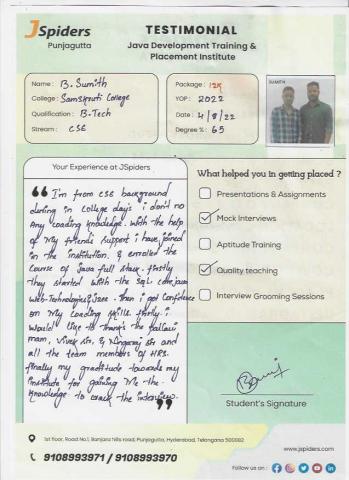 JSpiders
Punjagutta
TESTIMONIAL
Java Development Training &
Placement Institute
Name : B. Sumith
College : Samskruti College
Qualification : B.Tech
Stream : CSE
Package : 12K
YOP : 2022
Date : 4/8/22
Degree % : 65
SUMITH
Your Experience at JSpiders
I'm from CSE background
during in College days i don't no
Any Coading knowledge. with the help
of my friends support i have joined
in the institution. & enrolled the
Course of Java full stack. firstly
they started with the SQL core java
Web-Technologies, J2ee. then i got Confidence
on My Coading skills firtly. i
would like to thanks the pallavi
mam, Vivek sir, & Nagaraj sir and
all the team members of HRS.
finally my gratitude towards my
institute for gaining Me the
Knowledge to crack the interview.
What helped you in getting placed ?
Presentations & Assignments
Mock Interviews
Aptitude Training
Quality teaching
Interview Grooming Sessions
Student's Signature
1st floor, Road No.1, Banjara hills road, Punjagutta, Hyderabad, Telangana 500082
9108993971 / 9108993970
www.jspiders.com
Follow us on :